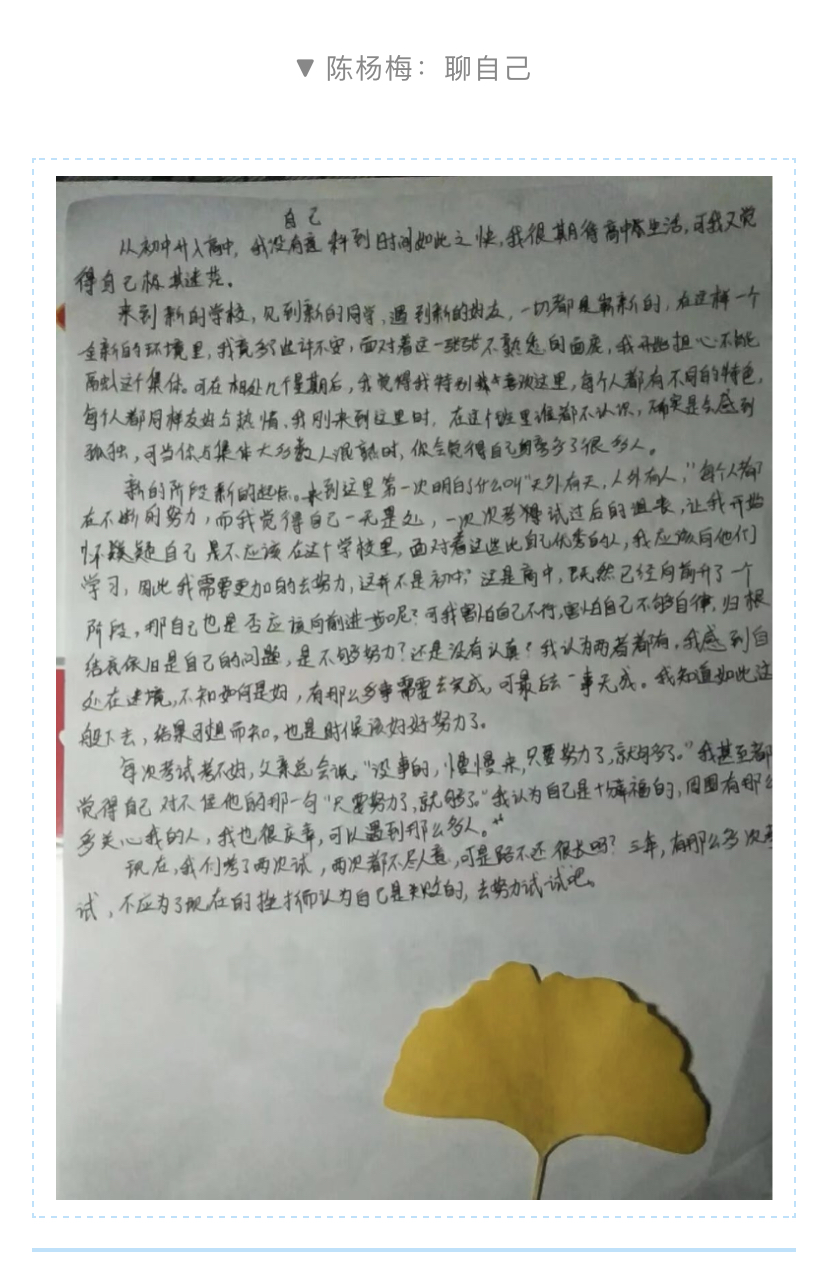 ▼ 陈杨梅：聊自己
自己
从初中升入高中，我没有意料到时间如此之快，我很期待高中生活，可我又觉
得自己极其迷茫。
来到新的学校，见到新的同学，遇到新的好友，一切都是崭新的，在这样一个
全新的环境里，我竟多了些许不安，面对着这一张张不熟悉的面庞，我开始担心不能
融入这个集体。可在相处几个星期后，我觉得我特别喜欢这里，每个人都有不同的特色，
每个人都同样友好与热情，我刚来到这里时，在这个班里谁都不认识，确实是会感到
孤独，可当你与集体大多数人混熟时，你会觉得自己拥有了很多人。
新的阶段新的起点。来到这里第一次明白了什么叫“天外有天，人外有人，”每个人都
在不断的努力，而我觉得自己一无是处，一次次考试过后的沮丧，让我开始
怀疑自己是不应该在这个学校里，面对着这些比自己优秀的人，我应该向他们
学习，因此我需要更加的去努力，这并不是初中，这是高中，既然已经向前升了一个
阶段，那自己也是否应该向前进一步呢？可我害怕自己不行，害怕自己不够自律，归根
结底依旧是自己的问题，是不够努力？还是没有认真？我认为两者都有，我感到自
处在迷境，不知如何是好，有那么多事需要去完成，可最后一事无成。我知道如此这
般下去，结果可想而知，也是时候该好好努力了。
每次考试考不好，父亲总会说，“没事的，慢慢来，只要努力了，就够了。”我甚至都
觉得自己对不住他的那一句“只要努力了，就够了。”我认为自己是十分幸福的，周围有那么
多关心我的人，我也很庆幸，可以遇到那么多人。
现在，我们考了两次试，两次都不尽人意，可是路不还很长吗？三年，有那么多次考
试，不应为了现在的挫折而认为自己是失败的，去努力试试吧。